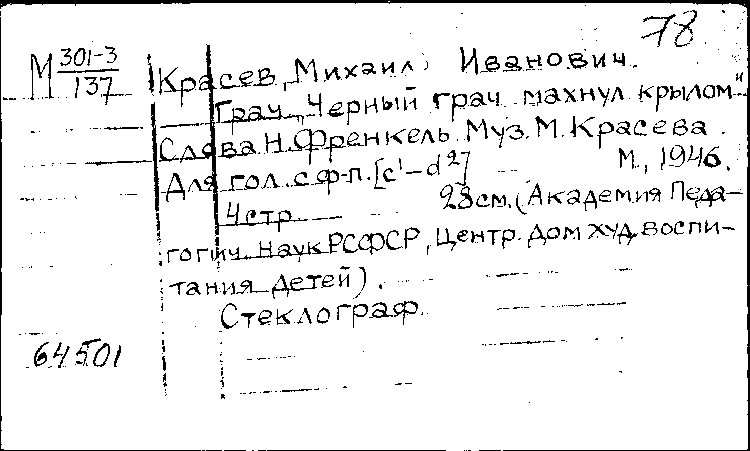 78
М 301-3/137
Красев, Михаил Иванович.
Грач „Черный грач махнул крылом"
Слова Н. Френкель. Муз. М. Красева.
Для гол. с ф-п. [c¹–d²] М., 1946.
4 стр. 28 см. (Академия Педа-
гогич. Наук РСФСР, Центр. дом худ. воспи-
тания детей).
Стеклограф.
64501